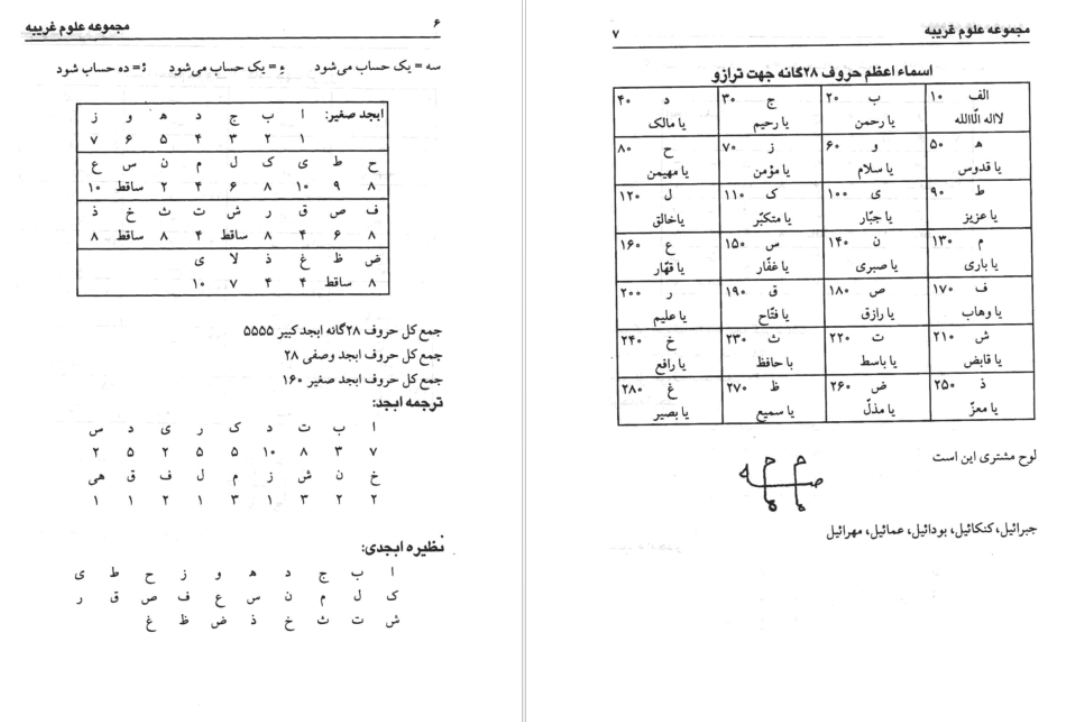 ۶ مجموعه علوم غریبه
سه = یک حساب می‌شود = یک حساب می‌شود = ده حساب شود
ابجد صغیر: ا ب ج د ه و ز
۱ ۲ ۳ ۴ ۵ ۶ ۷
ح ط ی ک ل م ن س ع
۸ ۹ ۱۰ ۸ ۶ ۴ ۲ ساقط ۱۰
ف ص ق ر ش ت ث خ ذ
۸ ۶ ۴ ۸ ساقط ۴ ۸ ساقط ۸
ض ظ غ ذ لا ی
۸ ساقط ۴ ۴ ۷ ۱۰
جمع کل حروف ۲۸گانه ابجد کبیر ۵۵۵۵
جمع کل حروف ابجد وصفی ۲۸
جمع کل حروف ابجد صغیر ۱۶۰
ترجمه ابجد:
ا ب ت د ک ر ی د س
۷ ۳ ۸ ۱۰ ۵ ۵ ۲ ۵ ۲
خ ن ش ز م ل ف ق هی
۲ ۲ ۳ ۱ ۳ ۱ ۲ ۱ ۱
نظیره ابجدی:
ا ب ج د ه و ز ح ط ی
ک ل م ن س ع ف ص ق ر
ش ت ث خ ذ ض ظ غ
مجموعه علوم غریبه ۷
اسماء اعظم حروف ۲۸گانه جهت ترازو
الف ۱۰ ب ۲۰ ج ۳۰ د ۴۰
لااله الّاالله یا رحمن یا رحیم یا مالک
ه ۵۰ و ۶۰ ز ۷۰ ح ۸۰
یا قدوس یا سلام یا مؤمن یا مهیمن
ط ۹۰ ی ۱۰۰ ک ۱۱۰ ل ۱۲۰
یا عزیز یا جبّار یا متکبّر یاخالق
م ۱۳۰ ن ۱۴۰ س ۱۵۰ ع ۱۶۰
یا باری یا صبری یا غفّار یا قهّار
ف ۱۷۰ ص ۱۸۰ ق ۱۹۰ ر ۲۰۰
یا وهاب یا رازق یا فتّاح یا علیم
ش ۲۱۰ ت ۲۲۰ ث ۲۳۰ خ ۲۴۰
یا قابض یا باسط با حافظ یا رافع
ذ ۲۵۰ ض ۲۶۰ ظ ۲۷۰ غ ۲۸۰
یا معزّ یا مذلّ یا سمیع یا بصیر
لوح مشتری این است
جبرائیل، کنکائیل، بودائیل، عمائیل، مهرائیل